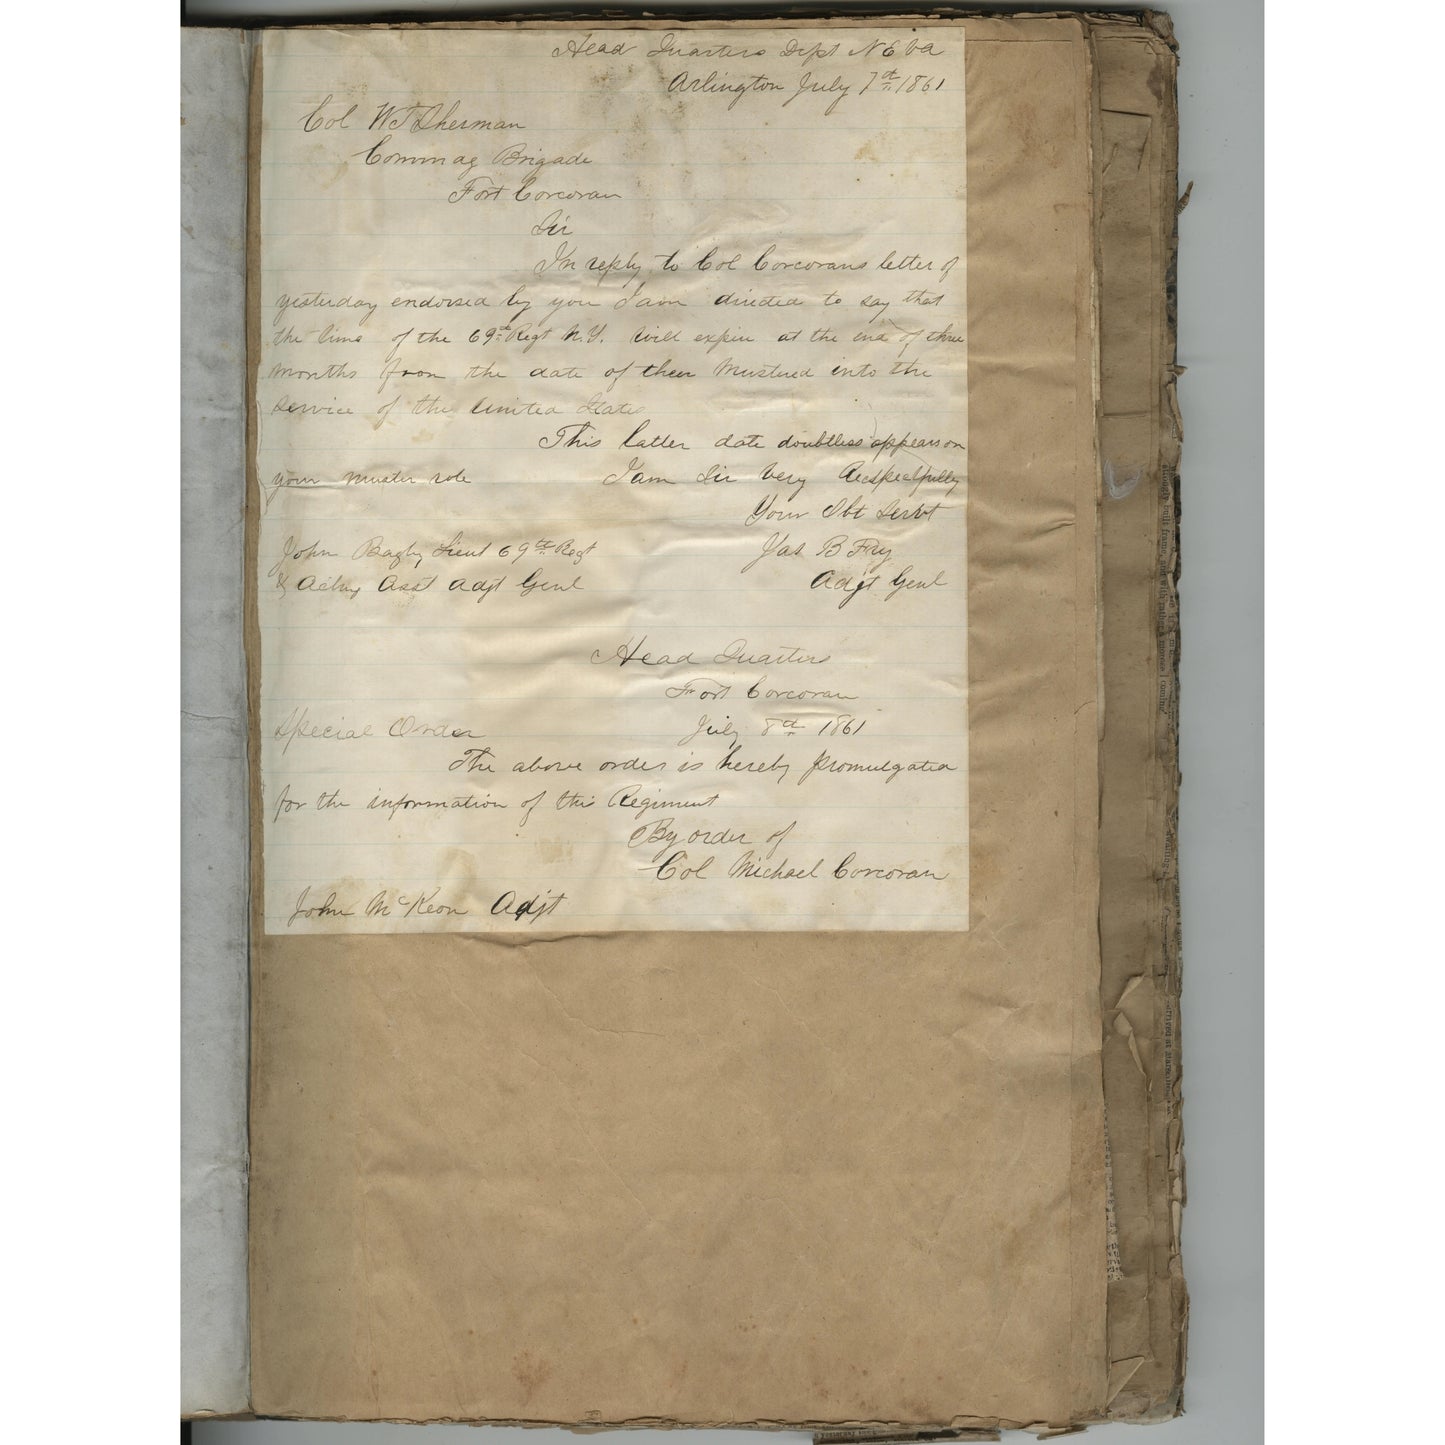 Head Quarters Dept N E Va
Arlington July 7th 1861
Col W T Sherman
Commag Brigade
Fort Corcoran
Sir
In reply to Col Corcorans letter of
yesterday endorsed by you I am directed to say that
the time of the 69th Regt N.Y. will expire at the end of three
months from the date of their Mustered into the
service of the United States
This latter date doubtless appears on
your muster role I am Sir Very Respectfully
Your Obt Servt
John Bagly Lieut 69th Regt Jas B Fry
& Acting Asst Adjt Genl Adjt Genl
Head Quarters
Fort Corcoran
Special Order July 8th 1861
The above order is hereby promulgated
for the information of this Regiment
By order of
Col Michael Corcoran
John McKeon Adjt